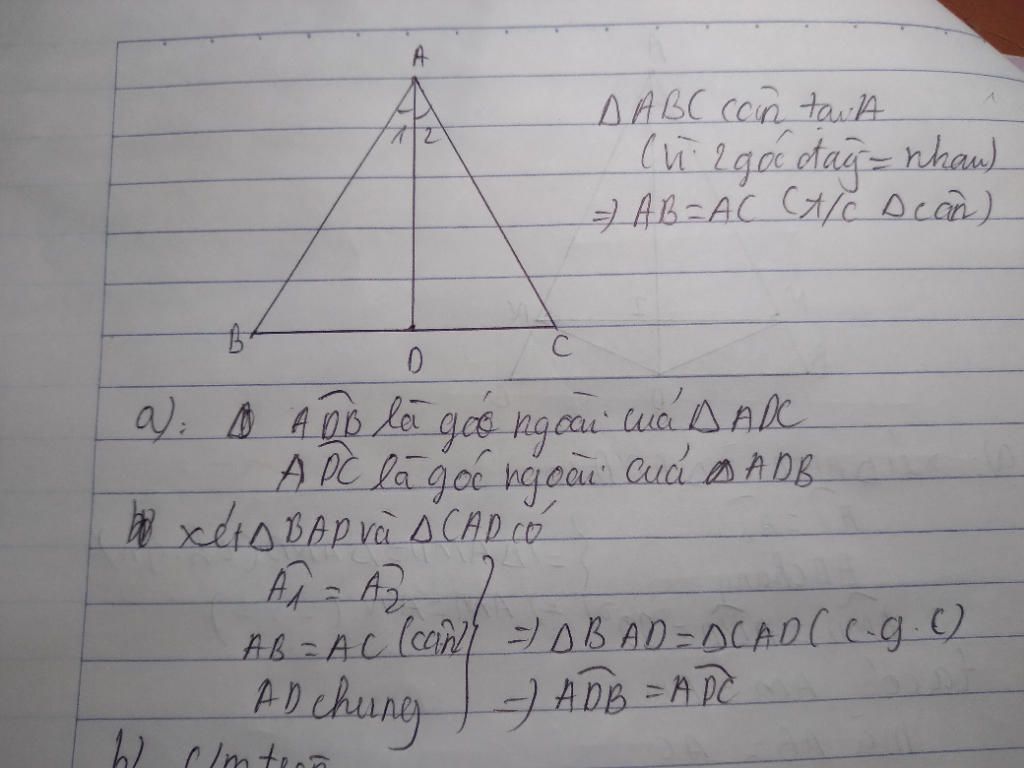 A
1 2
B
D
C
ΔABC cân tại A
(Vì 2 góc đáy = nhau)
⇒ AB = AC (t/c Δ cân)
a): ADB là góc ngoài của ΔADC
ADC là góc ngoài của ΔADB
xét ΔBAD và ΔCAD có
A1 = A2
AB = AC (cân)
AD chung
⇒ ΔBAD = ΔCAD (c.g.c)
⇒ ADB = ADC
b) c/m